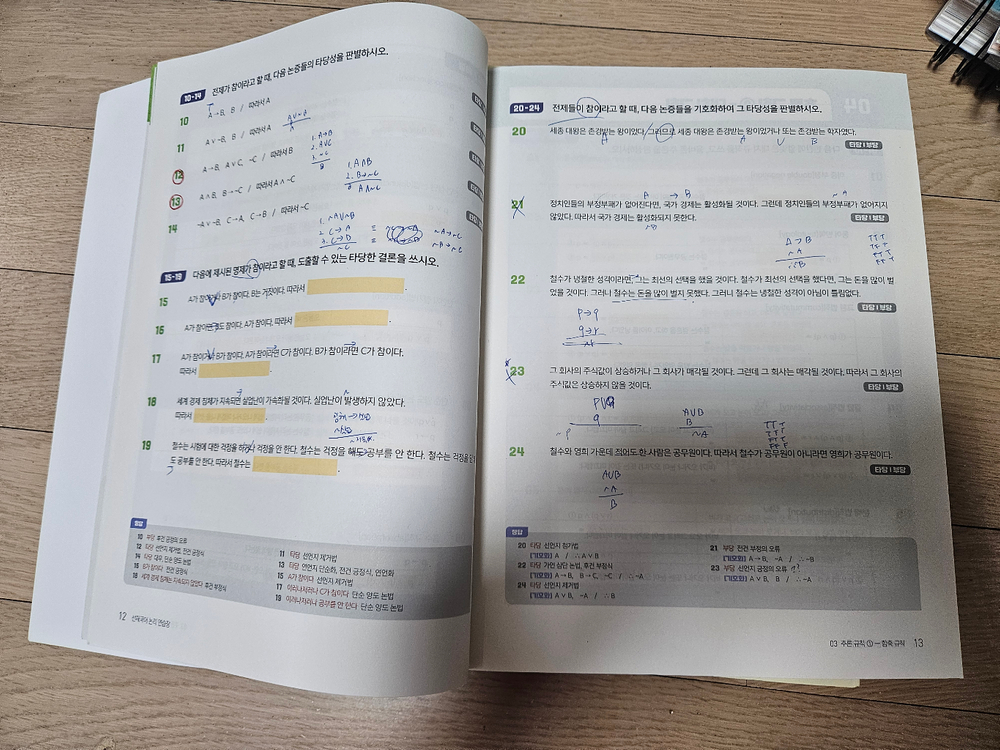 10-14 전제가 참이라고 할 때, 다음 논증들의 타당성을 판별하시오.
10 A→B, B / 따라서 A
11 A∨~B, B / 따라서 A
A∨~B
A
12 A→B, A∨C, ~C / 따라서 B
1. A→B
2. A∨C
3. ~C
B
13 A∧B, B→~C / 따라서 A∧~C
1. A∧B
2. B→~C
A∧~C
14 ~A∨~B, C→A, C→B / 따라서 ~C
1. ~A∨~B
2. C→A
3. C→B
~C
~A→~C
15-19 다음에 제시된 명제가 참이라고 할 때, 도출할 수 있는 타당한 결론을 쓰시오.
15 A가 참이거나 B가 참이다. B는 거짓이다. 따라서
16 A가 참이라면 B도 참이다. A가 참이다. 따라서
17 A가 참이거나 B가 참이다. A가 참이라면 C가 참이다. B가 참이라면 C가 참이다.
따라서
18 세계 경제 침체가 지속되면 실업난이 가속화될 것이다. 실업난이 발생하지 않았다.
따라서
19 철수는 시험에 대한 걱정을 하거나 걱정을 안 한다. 철수는 걱정을 해도 공부를 안 한다. 철수는 걱정을 안
도 공부를 안 한다. 따라서 철수는
정답
10 부당 후건 긍정의 오류
11 타당 선언지 제거법
12 타당 선언지 제거법, 전건 긍정식
13 타당 연언지 단순화, 전건 긍정식, 연언화
14 타당 대우, 단순 양도 논법
15 A가 참이다 선언지 제거법
16 B가 참이다 전건 긍정식
17 이러나저러나 C가 참이다 단순 양도 논법
18 세계 경제 침체는 지속되지 않았다 후건 부정식
19 이러나저러나 공부를 안 한다 단순 양도 논법
12 선재국어 논리 연습장
20-24 전제들이 참이라고 할 때, 다음 논증들을 기호화하여 그 타당성을 판별하시오.
20 세종 대왕은 존경받는 왕이었다. 그러므로 세종 대왕은 존경받는 왕이었거나 또는 존경받는 학자였다.
A A ∨ B
타당 | 부당
A → B ~A
21 정치인들의 부정부패가 없어진다면, 국가 경제는 활성화될 것이다. 그런데 정치인들의 부정부패가 없어지지
않았다. 따라서 국가 경제는 활성화되지 못한다.
타당 | 부당
~B
A→B
~A
∴~B
22 철수가 냉철한 성격이라면, 그는 최선의 선택을 했을 것이다. 철수가 최선의 선택을 했다면, 그는 돈을 많이 벌
었을 것이다. 그러나 철수는 돈을 많이 벌지 못했다. 그러니 철수는 냉철한 성격이 아님이 틀림없다.
타당 | 부당
p→q
q→r
~r
23 그 회사의 주식값이 상승하거나 그 회사가 매각될 것이다. 그런데 그 회사는 매각될 것이다. 따라서 그 회사의
주식값은 상승하지 않을 것이다.
타당 | 부당
P∨q
q
~p
A∨B
B
~A
24 철수와 영희 가운데 적어도 한 사람은 공무원이다. 따라서 철수가 공무원이 아니라면 영희가 공무원이다.
타당 | 부당
A∨B
~A
B
정답
20 타당 선언지 첨가법
[기호화] A / ∴ A∨B
21 부당 전건 부정의 오류
[기호화] A→B, ~A / ∴ ~B
22 타당 가언 삼단 논법, 후건 부정식
[기호화] A→B, B→C, ~C / ∴ ~A
23 부당 선언지 긍정의 오류
[기호화] A∨B, B / ∴ ~A
24 타당 선언지 제거법
[기호화] A∨B, ~A / ∴ B
03 추론 규칙 ① - 함축 규칙 13